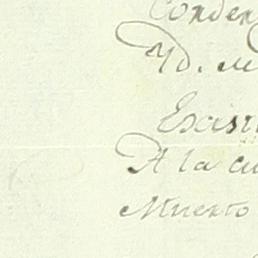 Conden
Yd. m
Esasi
A la cu
Muerto